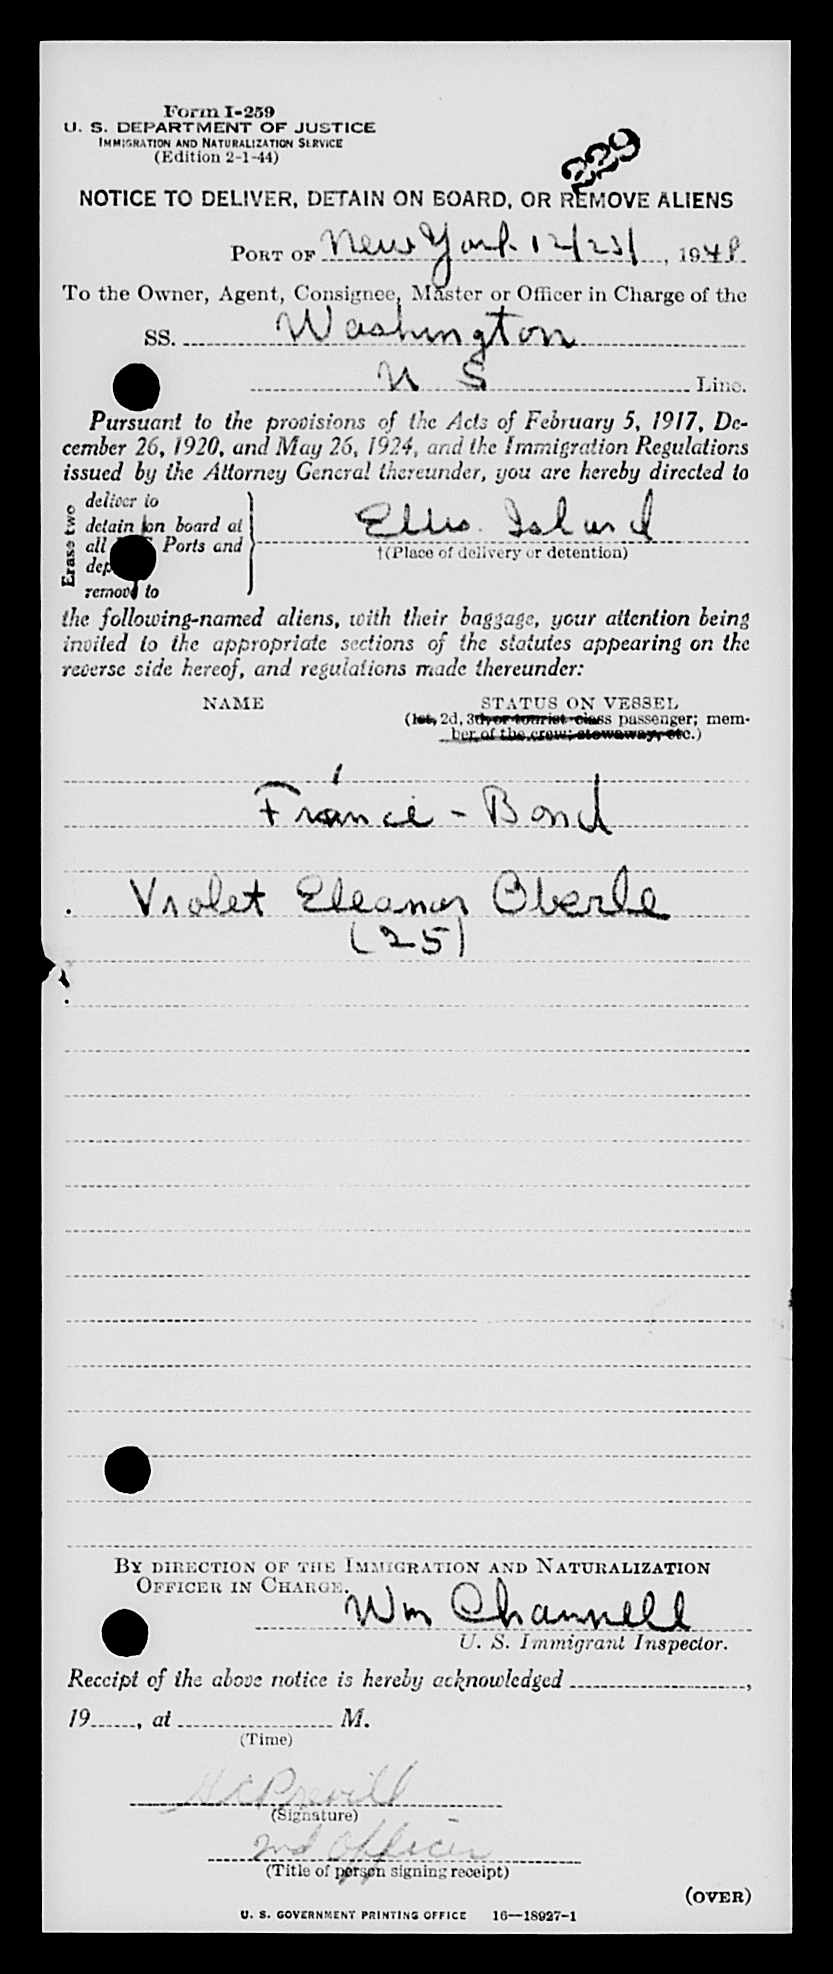 Form I-259
U. S. DEPARTMENT OF JUSTICE
IMMIGRATION AND NATURALIZATION SERVICE
(Edition 2-1-44)
229
NOTICE TO DELIVER, DETAIN ON BOARD, OR REMOVE ALIENS
PORT OF New York 12/23/, 1948.
To the Owner, Agent, Consignee, Master or Officer in Charge of the
SS. Washington
U S Line.
Pursuant to the provisions of the Acts of February 5, 1917, De-
cember 26, 1920, and May 26, 1924, and the Immigration Regulations
issued by the Attorney General thereunder, you are hereby directed to
Erase two
deliver to
detain on board at
all Ports and
remove to
Ellis Island
†(Place of delivery or detention)
the following-named aliens, with their baggage, your attention being
invited to the appropriate sections of the statutes appearing on the
reverse side hereof, and regulations made thereunder:
NAME STATUS ON VESSEL
(1st, 2d, 3d, or tourist-class passenger; mem-
ber of the crew; stowaway, etc.)
- Bond
Violet Eleanor Oberle
(25)
BY DIRECTION OF THE IMMIGRATION AND NATURALIZATION
OFFICER IN CHARGE.
Wm Channell
U. S. Immigrant Inspector.
Receipt of the above notice is hereby acknowledged ,
19 , at M.
(Time)
(Signature)
2nd Officer
(Title of person signing receipt)
(OVER)
U. S. GOVERNMENT PRINTING OFFICE 16—18927-1